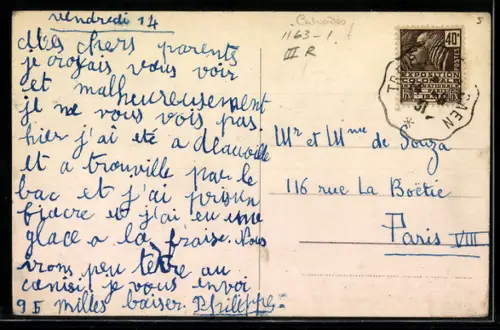 vendredi 14
Mes chers parents
je croyais vous voir
et malheureusement
je ne vous vois pas
hier j'ai été a deauville
et a trouville par le
bac et j'ai pri un
fiacre et j'ai eu une
glace a la fraise. Nous
irons peu tètre au
je vous envoi
milles baiser. Philippe=
Calvados
1163-1.
III R
40c
POSTES
EXPOSITION
COLONIALE
INTERNATIONALE
Mr et Mme de Souza
116 rue La Boëtie
Paris VIII